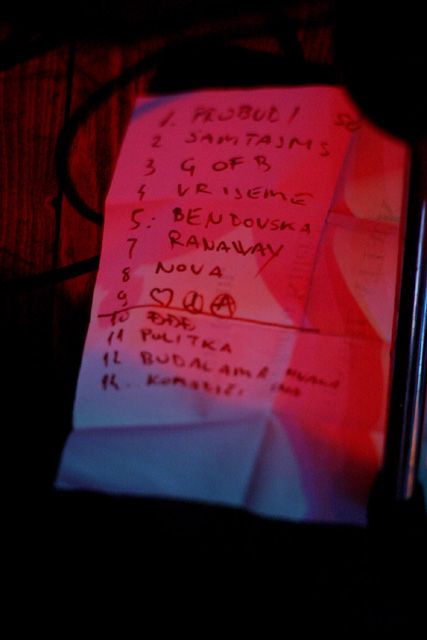 1. PROBUDI
2 SAMTAJMS
3 G OF B
4 VRIJEME
5. BENDOVSKA
7 RANAWAY
8 NOVA
9 ♡ ☮ Ⓐ
10 ĐĐĐ
11 PULITKA
12 BUDALAMA
14.